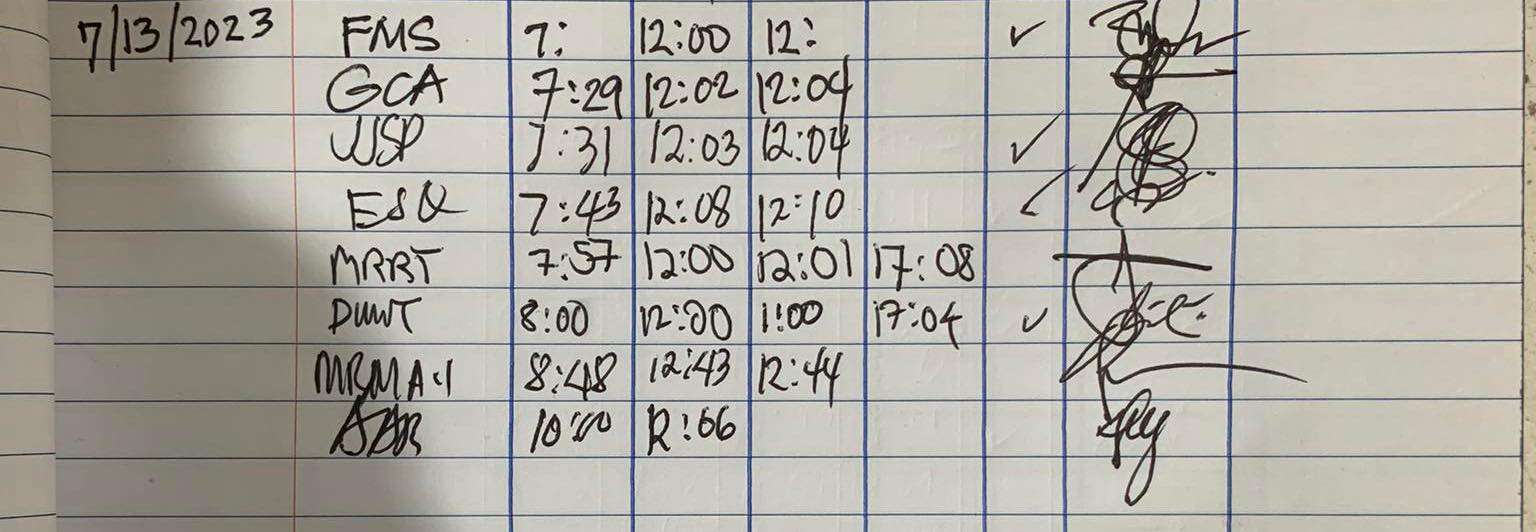 7/13/2023 FMS 7: 12:00 12: ✓
GCA 7:29 12:02 12:04
JJSP 7:31 12:03 12:04 ✓
ESQ 7:43 12:08 12:10 ✓
MRRT 7:57 12:00 12:01 17:08
8:00 12:00 1:00 17:04 ✓
8:48 12:43 12:44
10:00 12:06